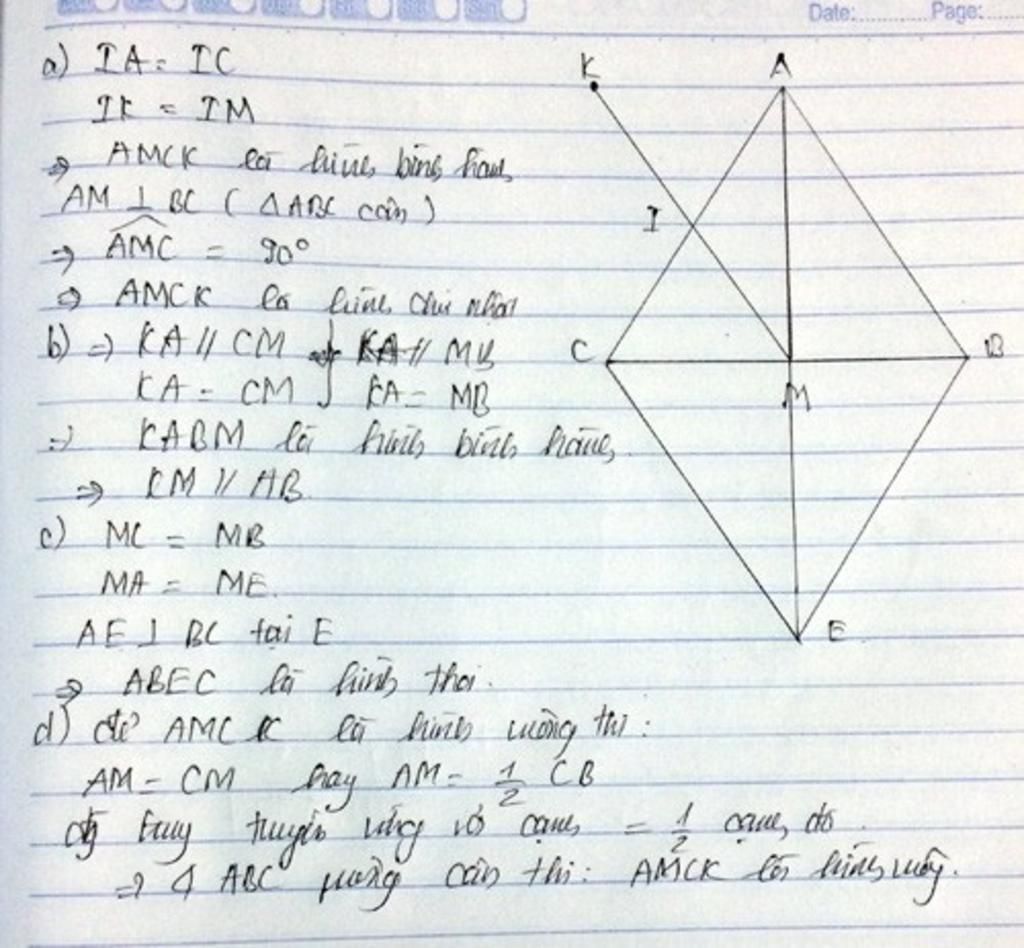 Date: Page:
a) IA = IC
IK = IM
⇒ AMCK là hình bình hành
AM ⊥ BC (ΔABC cân)
⇒ AMC = 90°
⇒ AMCK là hình chữ nhật
b) ⇒ KA // CM ⇒ KA // MB
KA = CM } KA = MB
⇒ KABM là hình bình hành
⇒ KM // AB
c) MC = MB
MA = ME
AE ⊥ BC tại E
⇒ ABEC là hình thoi.
d) để AMCK là hình vuông thì:
AM = CM hay AM = 1/2 CB
trung tuyến ứng với cạnh = 1/2 cạnh đó
⇒ Δ ABC vuông cân thì: AMCK là hình vuông.
K A
I
C M B
E